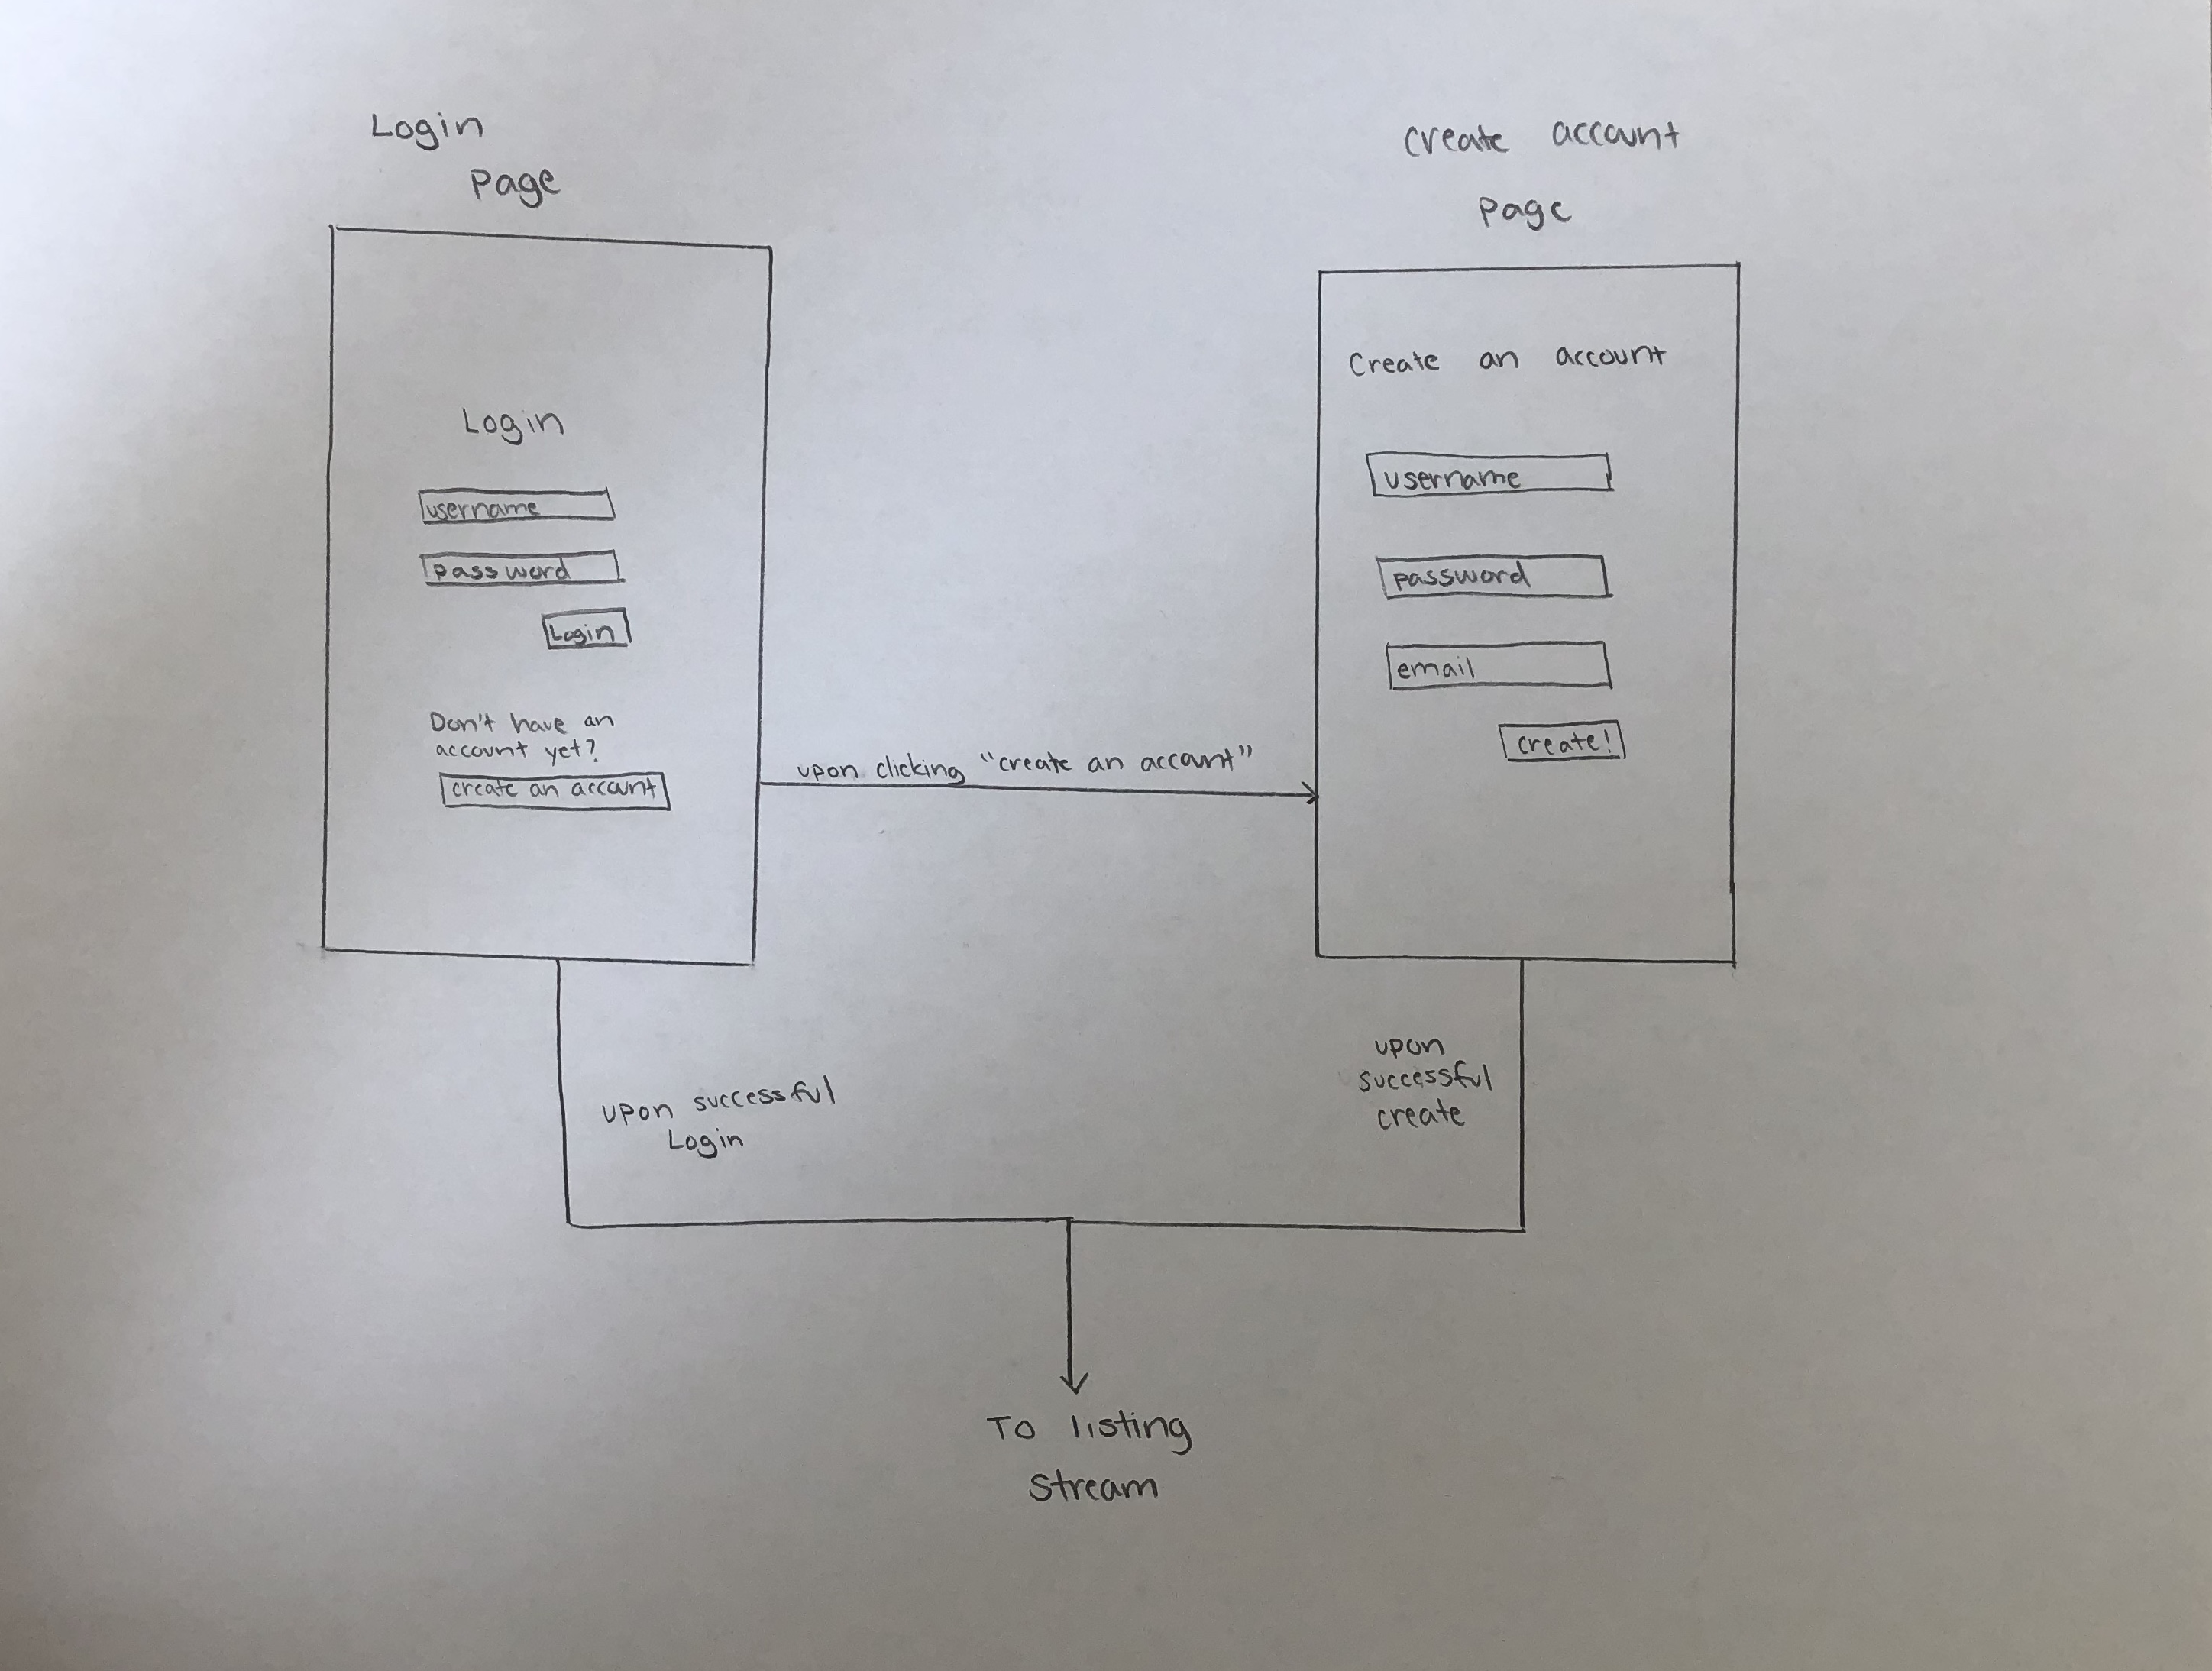 Login
Page
Login
username
password
Login
Don't have an
account yet?
create an account
upon clicking "create an account"
create account
page
Create an account
username
password
email
create!
upon successful
Login
upon
successful
create
To listing
Stream